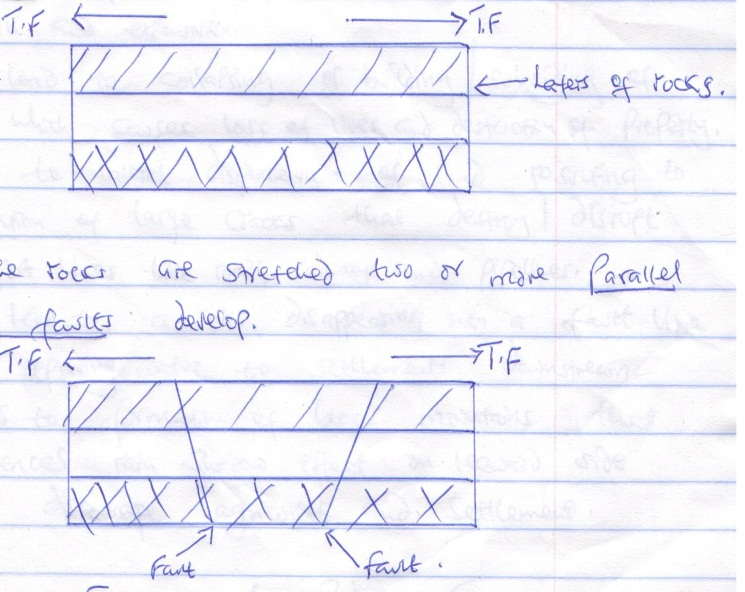 T.F T.F
Layers of rocks.
he rocks are stretched two or more Parallel
faults develop.
T.F T.F
Fault fault.